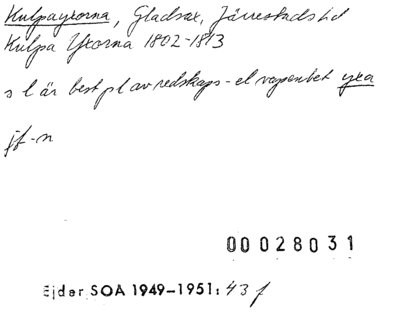 Kulpayxorna, Gladsax, Järrestads hd
Kulpa Yxorna 1802-1813
s l är best pl av redskaps- el vapenbet yxa
jf -n
00028031
Ejder SOA 1949-1951: 43 f